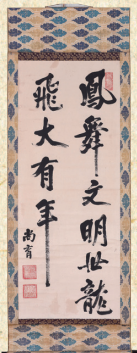 鳳舞文明世龍
飛大有年
尚育